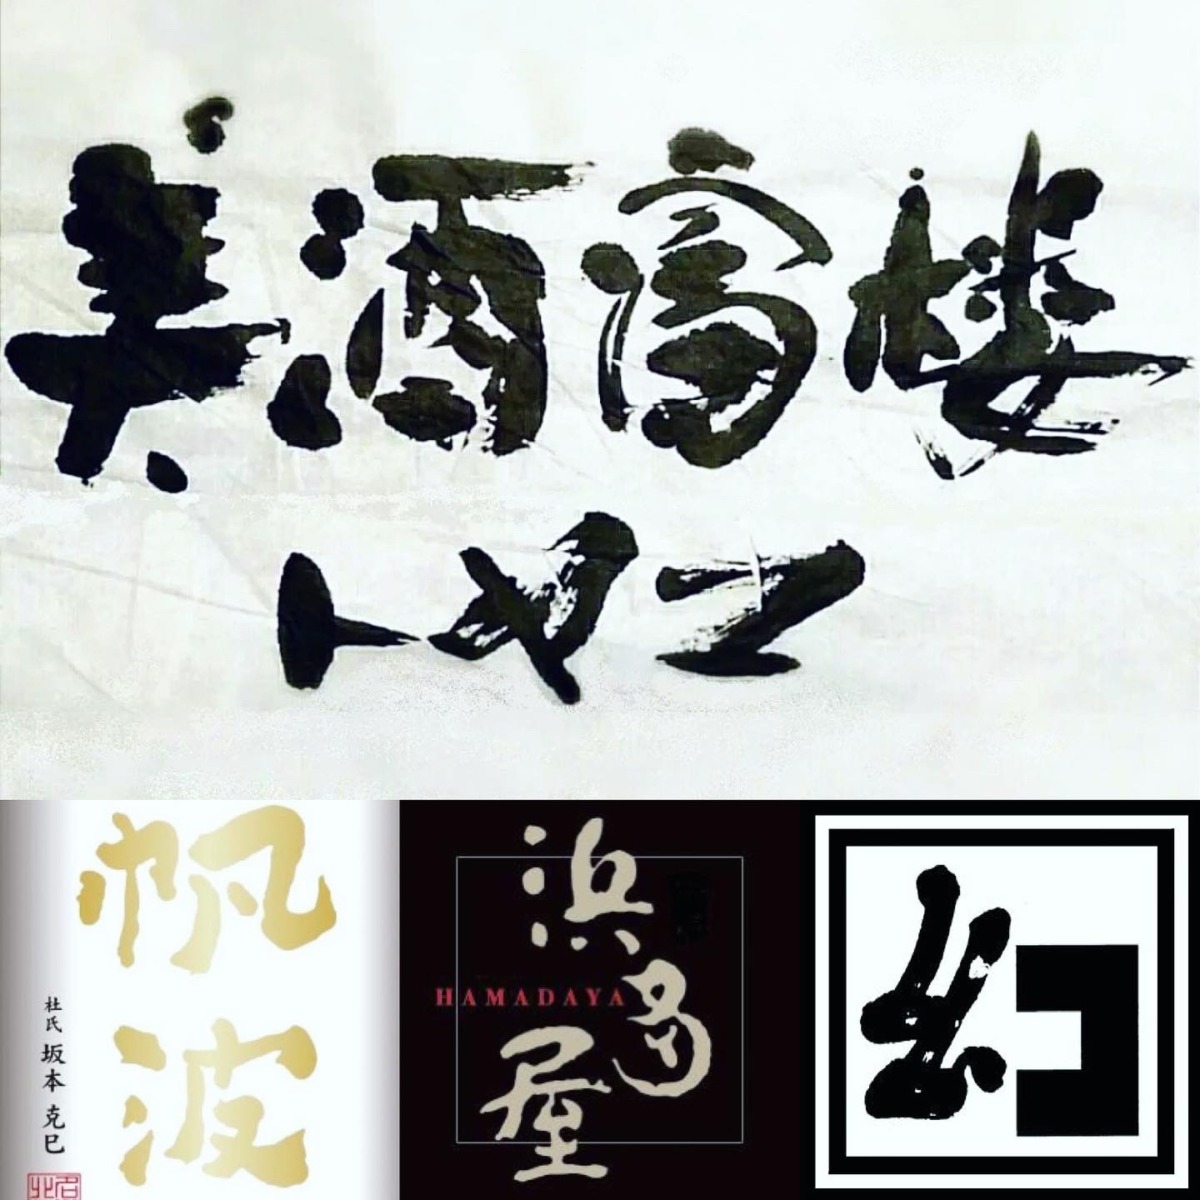 美酒富楼
帆波
杜氏 坂本 克巳
浜多屋
HAMADAYA
幻